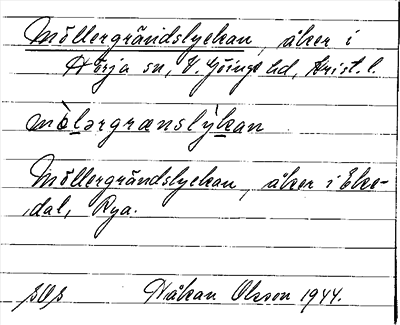 Möllergrändslyckan, åker i
Norja sn, V. Göinge hd, Krist. l.
mò̀lərgrænslỳkan
Möllergrändslyckan, åker i Eke-
dal, Rya.
Håkan Olsson 1944.